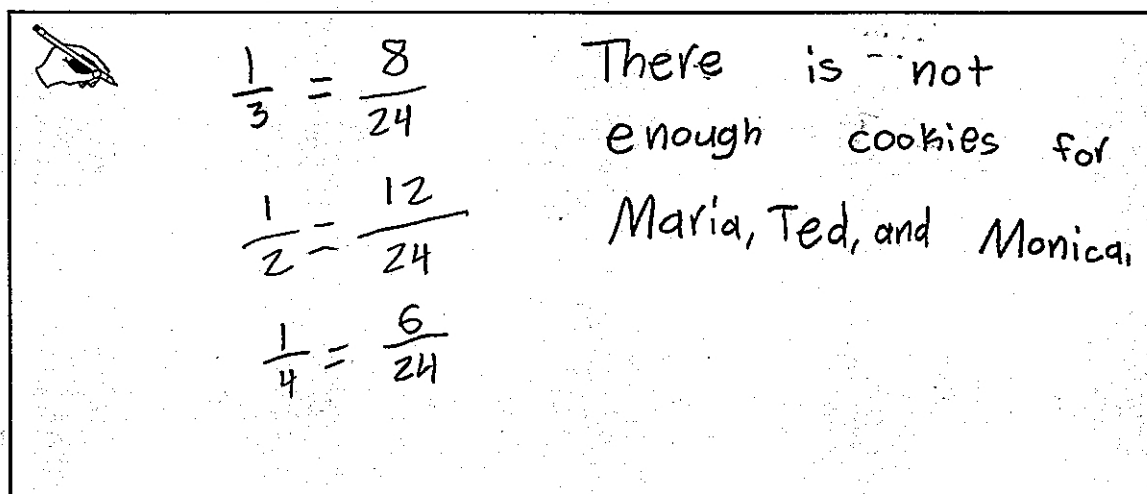 1/3 = 8/24
1/2 = 12/24
1/4 = 6/24
There is not
enough cookies for
Maria, Ted, and Monica.